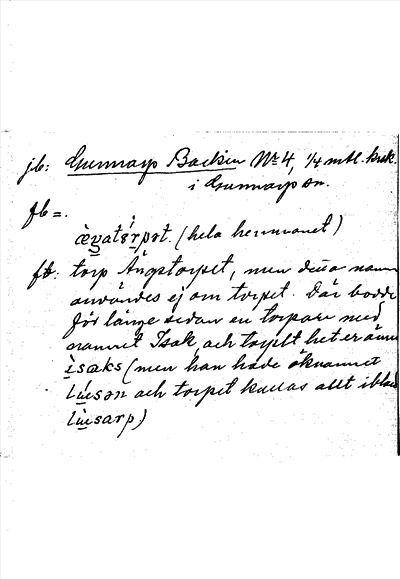 jb: Gunnarp Backen No 4, 1/4 mtl. krk.
i Gunnarp sn.
fb =.
ægatórpst. (hela hemmanet)
fb: torp Ängstorpet, men detta namn
användes ej om torpet. Där bodde
för länge sedan en torpare med
namnet Isak och torpet heter ännu
isaks (men han hade öknamnet
Lusən och torpet kallas allt ibland
lusarp)